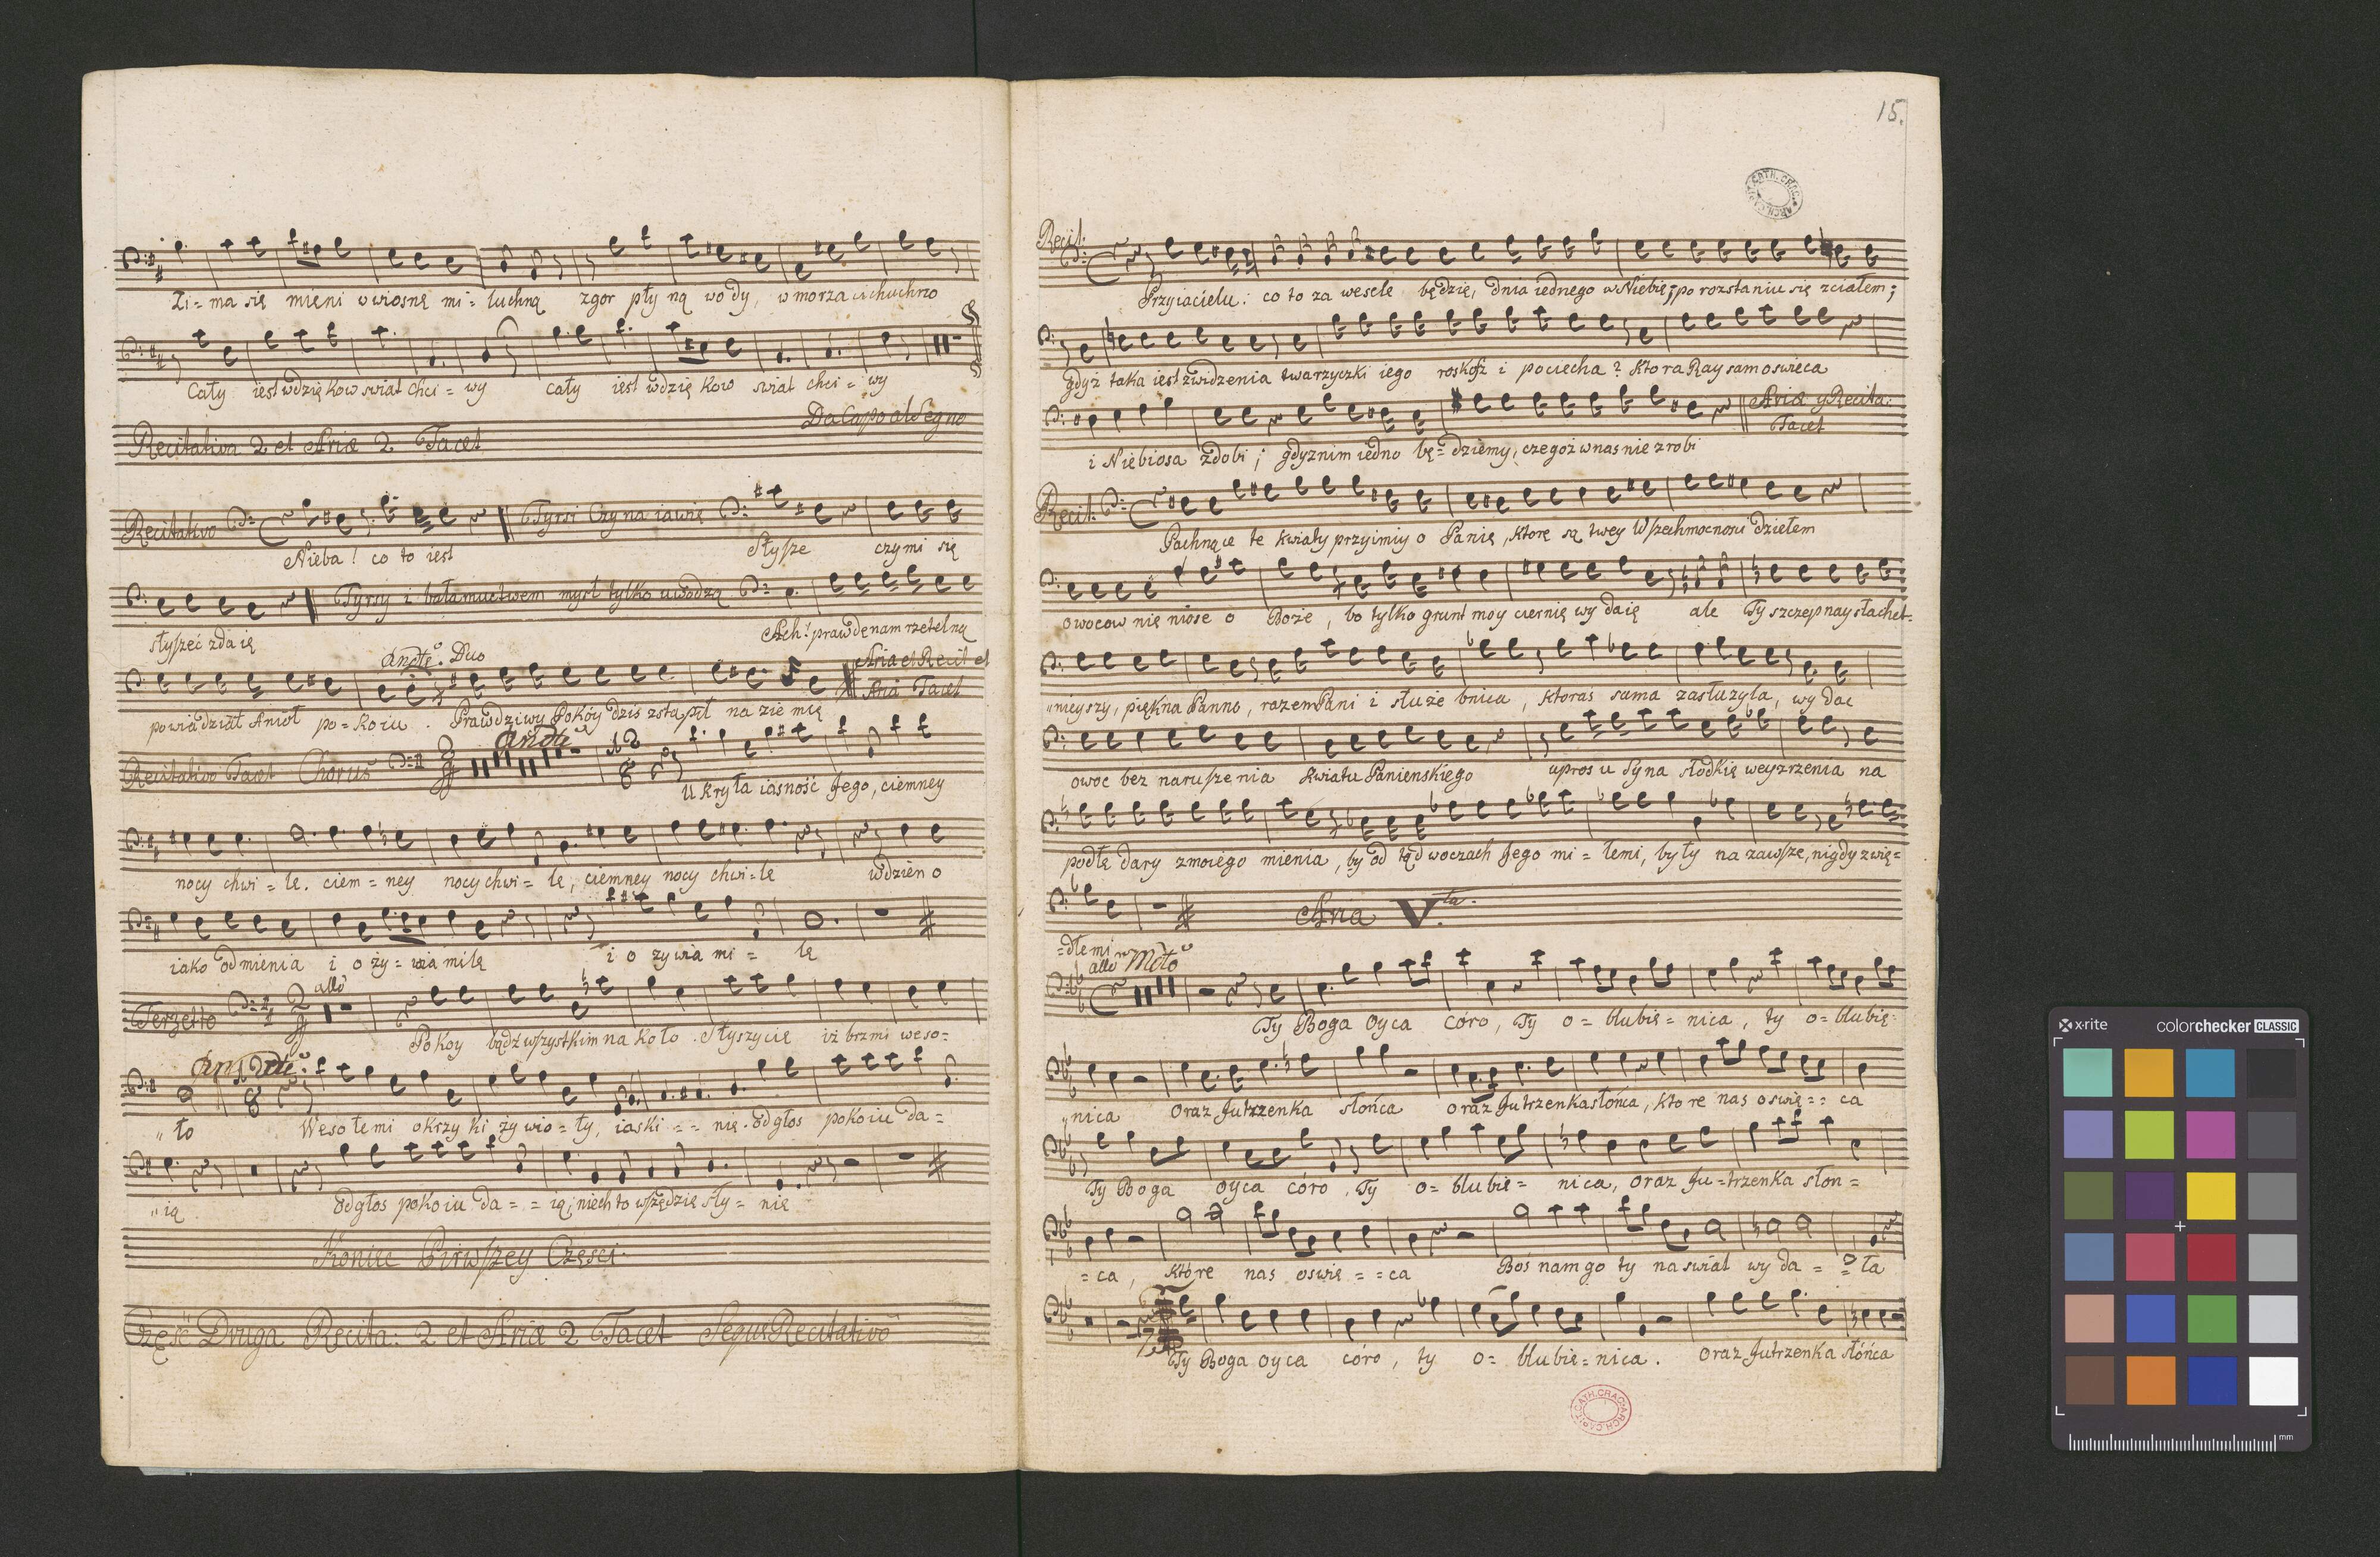 Zi=ma się mięni w wiosnę mi=luchną zgor płyną wody, w morza cichuchno
Cały iest wdziękow swiat chci=wy cały iest wdzięków swiat chci=wy
Da Capo al Segno
Recitativa 2 et Ariæ 2 Tacet
Recitativo Tyrsi Czy na iawię
Nieba! co to iest Słyszę czy mi się
Tyrsy i bałamuctwem mysl tylko uwodzą
słyszeć zdaię Ach! prawdę nam rzetelną
Andte. Duo Aria et Recit et Aria Tacet
powiadział Anioł po=koiu. Prawdziwy Pokóy dzis zstąpił na ziemię
Recitativo Tacet Chorus Andte
Ukryła iasność Jego, ciemney
nocy chwi=le. ciem=ney nocy chwi=lę, ciemney nocy chwi=lę w dzień o
iako odmienia i o ży=wia milę i o zywia mi=lę
Terzetto allo
Pokoy bądź wszystkim na koło. Słyszycie iż brzmi weso=
Andte
"ło Wesołemi okrzyki żywio=ły, iaski==nię. odgłos pokoiu da=
"ią odgłos pokoiu da==ią; niech to wszędzię sły=nię
Koniec Pirwszey Częsci.
Część Druga Recita: 2 et Ariæ 2 Tacet Sequr Recitativo
15.
Recit:
Przyiacielu: co to za wesele będzię, dnia iednego w Niebię; po rozstaniu się zciałem;
gdyż taka iest zwidzenia twarzyczki iego roskosz i pociecha? Ktora Ray sam oswieca
Ariæ y Recita: Tacet
i Niebiosa zdobi; gdyznim iedno bę=dziemy, czegoż w nas nie zrobi
Recit:
Pachnące te kwiaty przyimiy o Panię, ktorę są twey Wszechmocnosci dziełem
owocow nię niosę o Boże, bo tylko grunt moy ciernię wydaię ale Ty szczep nayslachet=
"nieyszy, piękna Panno, razem Pani i służebnica, ktoraś sama zasłuzyła, wydac
owoc bez naruszenia kwiatu Panienskiego upros u Syna słodkię weyzrzenia na
podłę dary zmoiego mienia, by od tąd w oczach Jego mi=łemi, były na zawsze, nigdy zwię=
Aria Vta.
=dłemi
allo Molto
Ty Boga Oyca córo, Ty o=blubię=nica, ty o=blubię=
"nica oraz Jutrzenka słońca oraz Jutrzenka słońca, która nas oswię==ca
Ty Boga oyca córo, Ty o=blubię=nica, oraz Ju=trzenka słoń=
=ca, które nas oswię==ca Boś nam go ty na swiat wyda==ła
Ty Boga oyca córo, ty o=blubię=nica. oraz Jutrzenka słońca
ARCH. CAPIT. CATH. CRAC.
x-rite colorchecker CLASSIC
mm